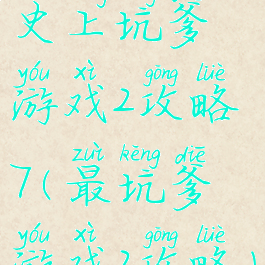 史上坑爹
yóu xì gōng lüè
游戏2攻略
zuì kēng diē
7(最坑爹
yóu xì gōng lüè
游戏2攻略)